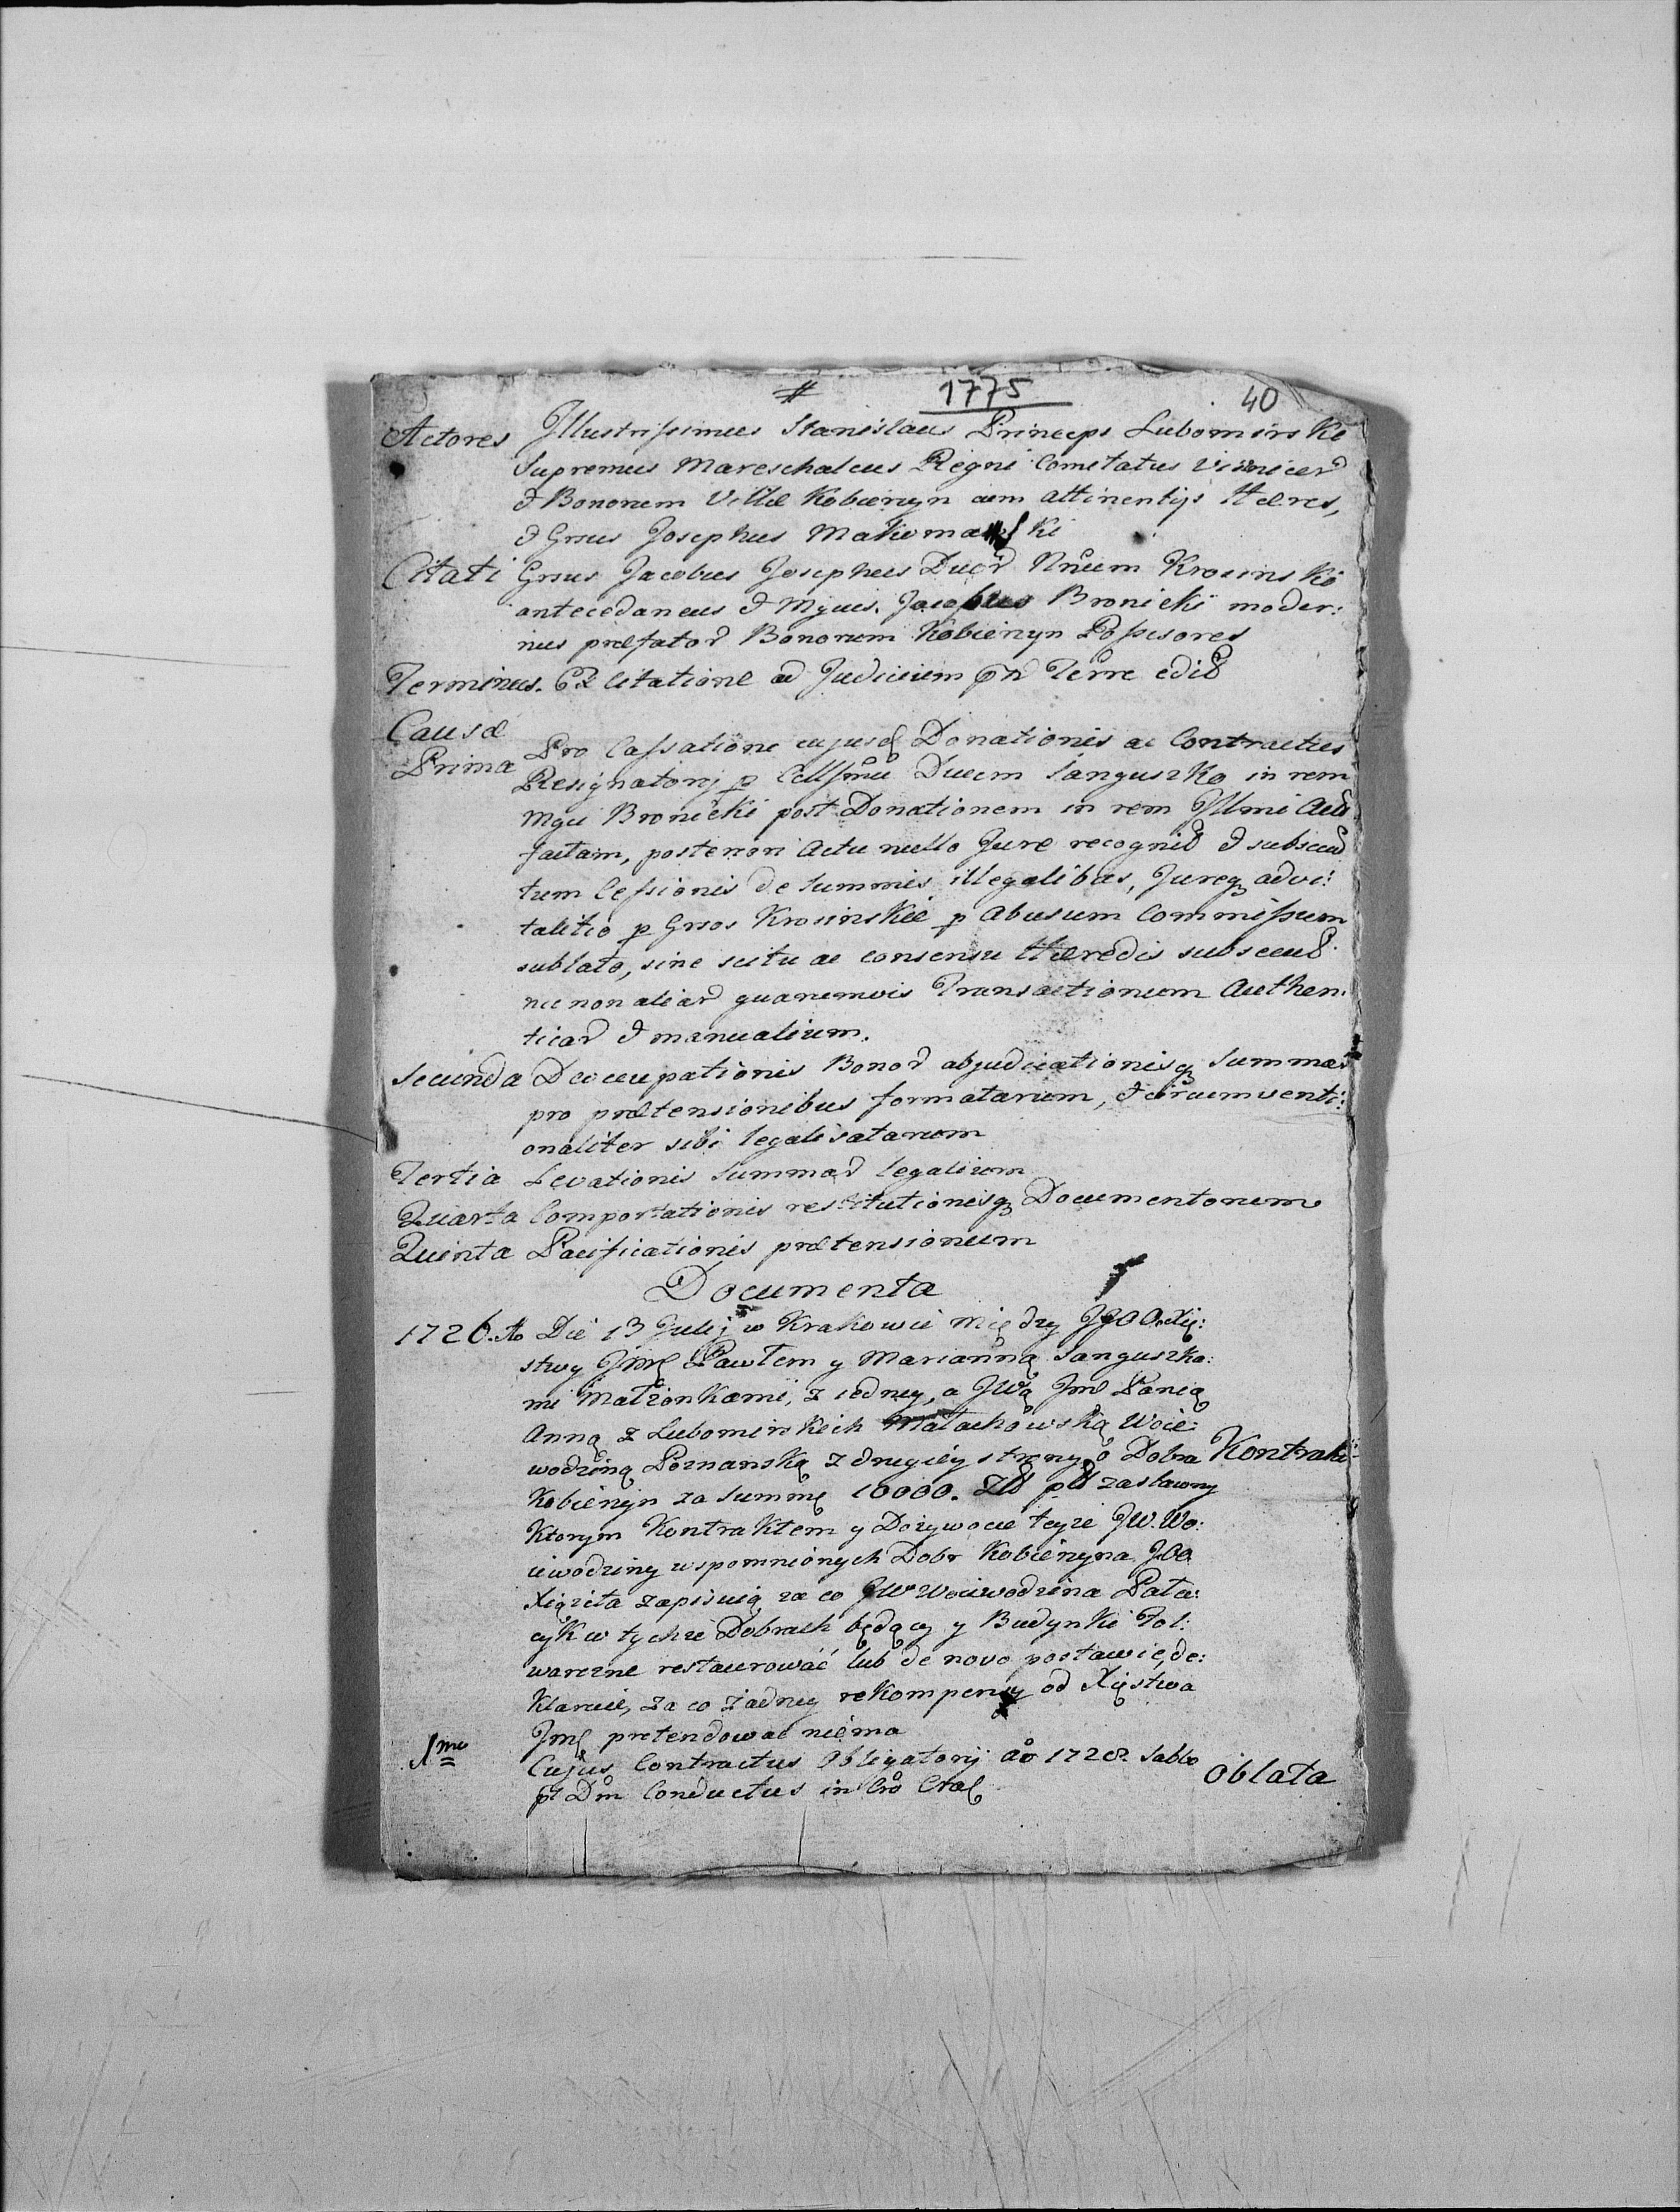 # 1775 40
Actores Illustrissimus Stanislaus Princeps Lubomirski
Supremus Mareschalcus Regni Comitatus Visnicen
& Bonorum Villæ Kobierzyn cum attinentijs Hæres,
& Gnsus Josephus Makoma ski
Citati Gnsus Jacobus Josephus Duor Nnum Krosinski
antecedaneus & Mgnus. Josephus Bronicki moder:
nus præfator Bonorum Kobierzyn Possesores
Terminus. Ex Citatione ad Judicium Terre
Causæ
Prima Pro Cassatione cujusd Donationis ac Contractus
Resignatorij p Cellsmu Ducem Sanguszko in rem
Mgci Bronicki post Donationem in rem Illmi
factam, posteriori Actu nullo Jure & subsecu
tum Cessionis de Summis illegalibus, Jureq advi:
talitio p Gnsos Krosinskie p Abusum Commissum
sublato, sine scitu ac consensu Hæredis
nec non aliar quarumvis Transactionum Authen:
ticar & manualium.
Secunda Deoccupationis Bonor abjudicationisq Summar
pro prætensionibus formatarum, & circumventi:
onaliter sibi legalisatarum
Tertia Levationis Summar legalium
Quarta Comportationis restitutionisq Documentorum
Quinta Pacificationis prætensionum
Documenta
1726. Ao Die 13 Julij w Krakowie między JJOO. Xię:
stwy Jmę Pawłem y Marianną Sanguszka:
mi Małżonkami, z iedney, a JWą Jm Panią
Anną z Lubomirskich Małachowską Woie:
wodziną Poznanską z drugiey strony, o Dobra Kontrakt
Kobierzyn za Summę 10000. Zł pl zastawny
Ktorym Kontraktem y Dożywocie teyże JW. Wo:
iewodziny wspomnionych Dobr Kobierzyna JOO
Xiążęta zapisuią za co JW Woiewodzina Pała:
cyk w tychże Dobrach będący y Budynki Fol:
warczne restaurować lub de novo postawić, de:
klaruie, za co żadney rekompensy od Xięstwa
Jmę pretendować niema
1mo Cujus Contractus Obligatorij ao 1728. Sabbo
pt Dm Conductus in Cro Oblata